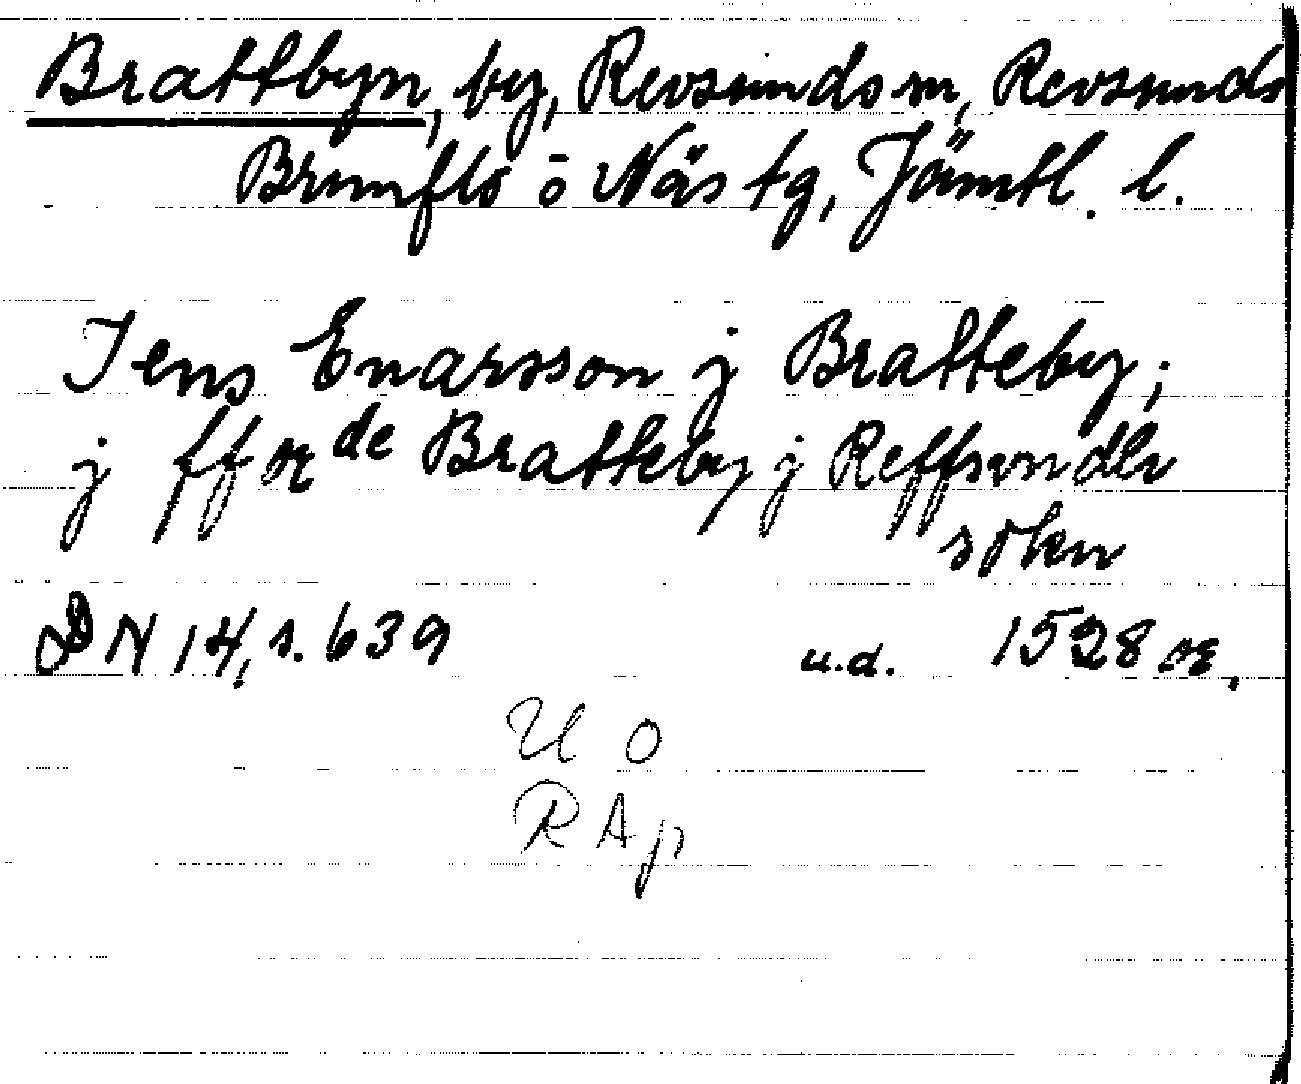 Brattbyn, by, Revsunds sn, Revsunds
Brunflo o Näs tg, Jämtl. l.
Jens Enarsson j Bratteby;
j fför de Bratteby j Reffsunde
sokn
DN 14, s. 639 u.d. 1528 or.
U O
R A p